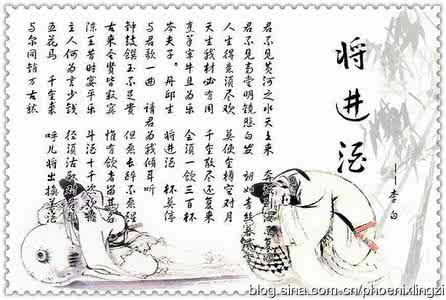 将进酒
——李白
君不见黄河之水天上来 奔流到海
君不见高堂明镜悲白发 朝如青丝暮成雪
人生得意须尽欢 莫使金樽空对月
天生我材必有用 千金散尽还复来
烹羊宰牛且为乐 会须一饮三百杯
岑夫子,丹邱生 将进酒 杯莫停
与君歌一曲 请君为我倾耳听
钟鼓馔玉不足贵 但愿长醉不愿醒
古来圣贤皆寂寞 惟有饮者留其名
陈王昔时宴平乐 斗酒十千恣欢谑
主人何为言少钱 径须沽取对君酌
五花马 千金裘 呼儿将出换美酒
与尔同销万古愁
blog.sina.com.cn/phoenixlingzi